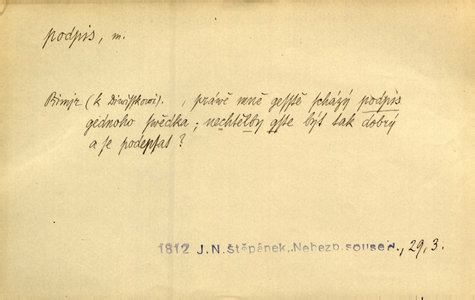 podpis, m.
(k Diwiškowi). , práwě mně gessstě scházý podpis
gednoho swědka; nechtělby gste být tak dobrý
a se podepsat?
1812 J. N. Štěpánek, Nebezp. soused., 29, 3.